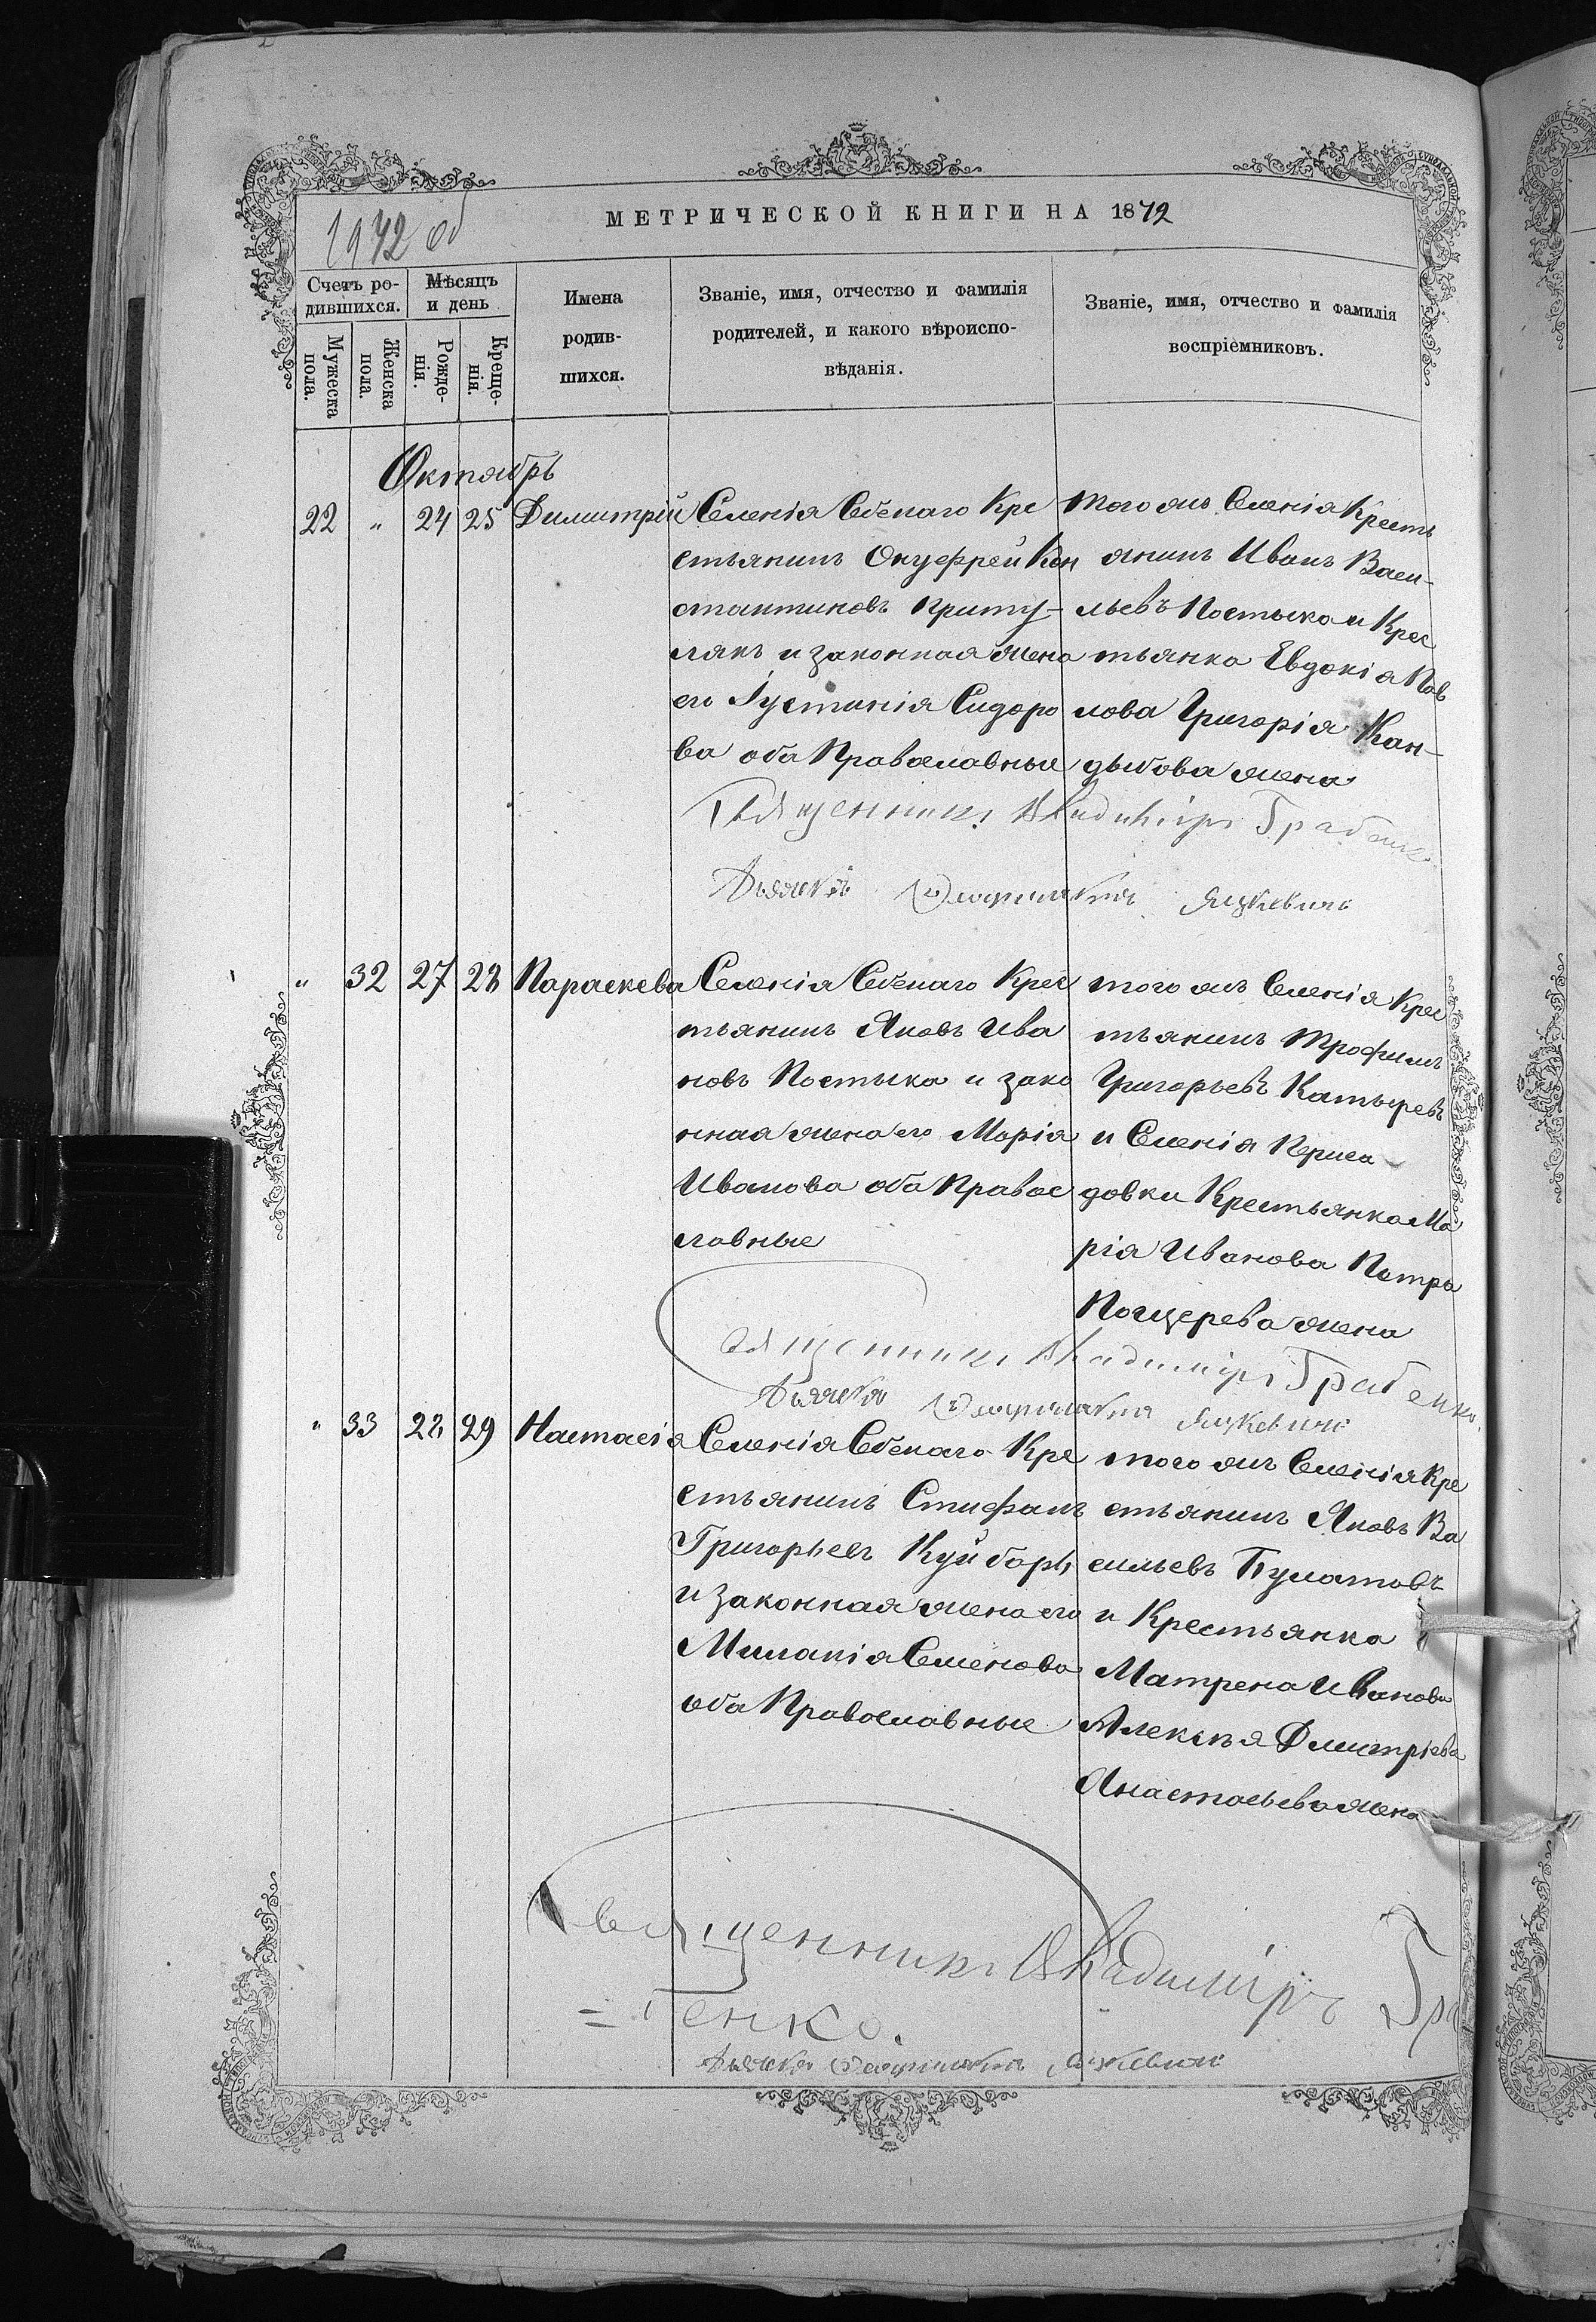 МЕТРИЧЕСКОЙ КНИГИ НА 1872
1972 об
Счетъ ро-
дившихся.
Мужеска
пола.
Женска
пола.
Мѣсяцъ
и день
Рожде-
нія.
Креще-
нія.
Имена
родив-
шихся.
Званіе, имя, отчество и фамилія
родителей, и какого вѣроиспо-
вѣданія.
Званіе, имя, отчество и фамилія
воспріемниковъ.
Октябрь
22 „ 24 25 Димитрій
Селенія Кре
стьянинъ Онуфрей Кон
стантиновъ Приту-
лякъ и законная жена
его Іустинія Сидоро
ва оба Православные
того жъ Селенія Кресть
янинъ Иванъ Васи-
льевъ Постыка и Крес
тьянка Евдокія Пав
лова Григорія Кан-
дыбова жена
Священникъ Владиміръ Грабенко
Дьячекъ Яцкевичъ
„ 32 27 28 Параскева
Селенія Крес
тьянинъ Яковъ Ива
новъ Постыка и зако
нная жена его Марія
Иванова оба Правос
лавные
того жъ Селенія Крес
тьянинъ Трофимъ
Григорьевъ Катыревъ
и Селенія
довки Крестьянка Ма
рія Иванова Петра
жена
Священникъ Владиміръ Грабенко
Дьячекъ Яцкевичъ
„ 33 28 29 Настасія
Селенія Кре
стьянинъ Стефанъ
Григорьевъ Куйборъ
и законная жена его
Миланія Семенова
оба Православные
того жъ Селенія Кре
стьянинъ Яковъ Ва
сильевъ Булатовъ
и Крестьянка
Матрена Иванова
Алексѣя Дмитріева
Анастасьева жена
Священникъ Владиміръ Гра
=бенко.
Дьячекъ Яцкевичъ